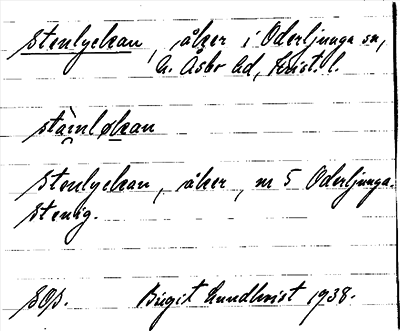 Stenlyckan, åker i Oderljunga sn,
N. Åsbo hd, Krist. l.
stạ̀inløkan
Stenlyckan, åker, nr 5 Oderljunga.
Stenig.
SOP. Birgit Lundkvist 1938.